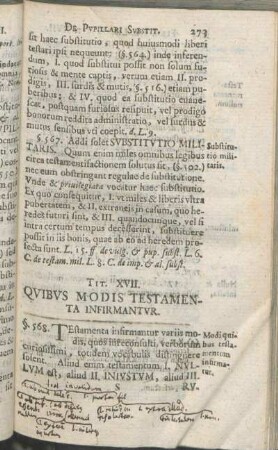 DE PUPILLARI SUBSTIT. 273
sit haec substitutio, quod huiusmodi liberi
testari ipsi nequeunt: (§. 564.) inde inferen-
dum, I. quod substitui possit non solum fu-
riosis & mente captis, verum etiam II. prodi-
gis, III. surdis & mutis, (§. 516.) etiam pu-
beribus; & IV. quod ea substitutio evane-
scat, postquam furiosus resipuit, vel prodigo
bonorum reddita administratio, vel surdus &
mutus sensibus voci coepit. d. L. 9.
§. 567. Addi solet SVBSTITVTIO MILI-
TARIS. Quum enim miles omnibus legibus
circa testamentifactionem solutus sit, (§. 502.)
nec eum obstringant regulae de substitutione.
Vnde & privilegiata vocatur haec substitutio.
Ex quo consequitur, I. vt miles & liberis vltra
pubertatem, & II. extraneis in casum, quo he-
redes futuri sint, & III. quandocunque, vel si
intra certum tempus decesserint, substituere
possit in sis bonis, quae ab eo ad heredem pro-
fecta sunt. L. 15. ff de vulg. & pup. subst. L. 6.
C. de testam. mil. L. 8. C. de imp. & al. subst.
Substitu-
tio mili-
taris.
TIT. XVII.
QVIBVS MODIS TESTAMEN-
TA INFIRMANTVR.
§. 568. TEstamenta infirmantur variis mo-
dis, quos iureconsulti, verborum
curiosissimi, totidem vocabulis distinguere
solent. Aliud enim testamentum, I. NV-
LVM est, aliud II. INIVSTVM, aliud III.
RV-
Modi qui-
bus testa-
mentum
infirma-
tur.